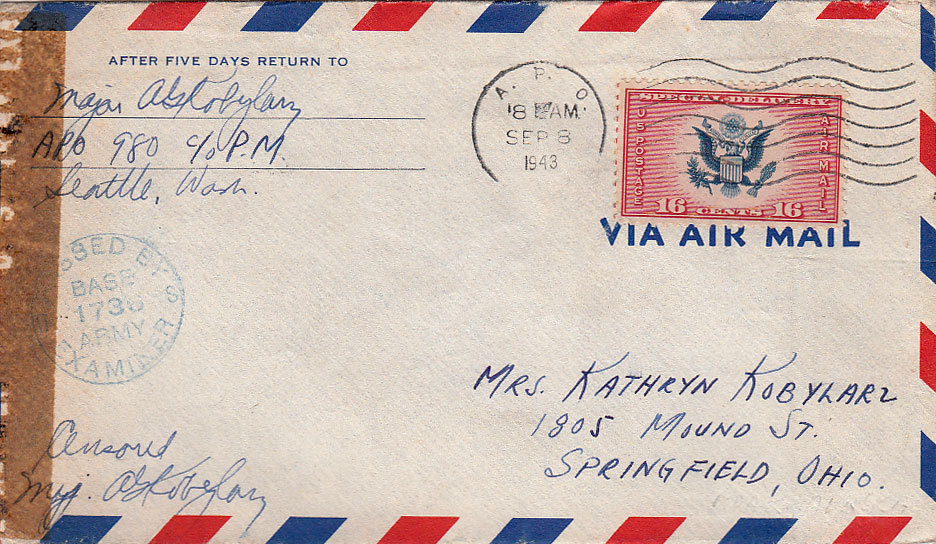 AFTER FIVE DAYS RETURN TO
Major Kobylarz
APO 980 c/o P.M.
Seattle, Wash.
A. P. O.
8 AM
SEP 8
1943
SPECIAL DELIVERY
US POSTAGE
AIR MAIL
16 CENTS 16
VIA AIR MAIL
SSED BY
BASE
ARMY
EXAMINER
Mrs. Kathryn Kobylarz
1805 Mound St.
Springfield, Ohio.
Censored
Maj. Kobylarz